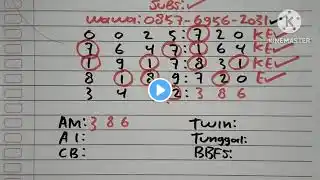 SUBS:
wawa: 0857-6956-2031
KINEMASTER
0 0 2 5 : 7 2 0 KE
7 6 4 7 : 1 6 4 KE
1 9 1 7 : 8 3 1 KE
8 1 8 9 : 7 2 0 E
3 4 2 : 3 8 6
AM: 3 8 6 Twin:
AI: Tunggal:
CB: BBFS: